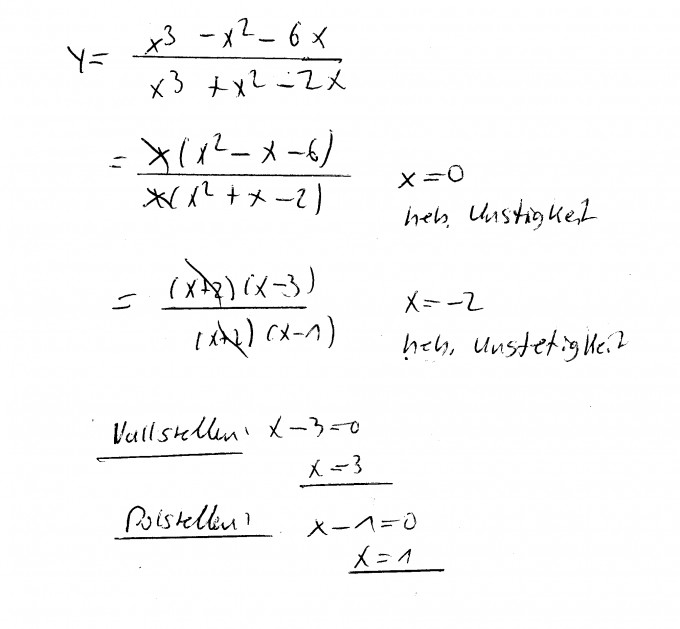 y = (x³ - x² - 6x) / (x³ + x² - 2x)
= x(x² - x - 6) / x(x² + x - 2)
x = 0
heb. Unstigkeit
= (x+2)(x-3) / (x+2)(x-1)
x = -2
heb. Unstetigkeit
Nullstellen: x - 3 = 0
x = 3
Polstellen: x - 1 = 0
x = 1